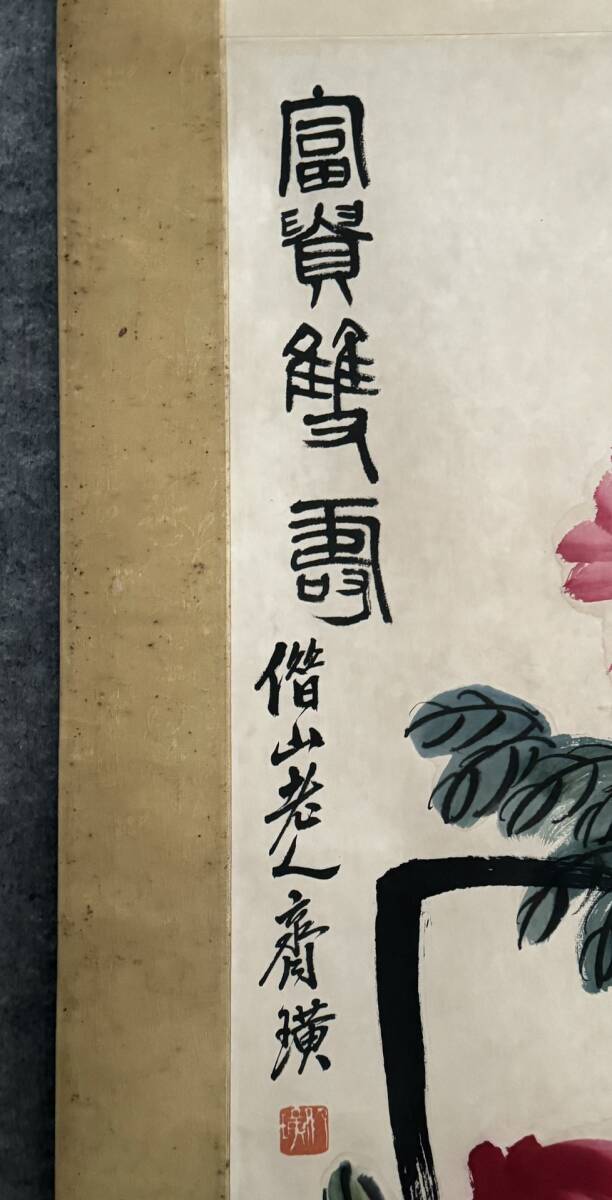 富貴雙壽
借山老人齊璜